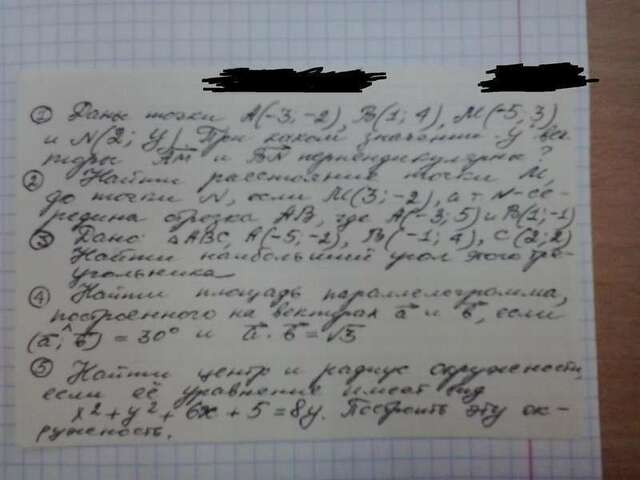 ① Даны точки А(-3; -2), В(1; 4), М(-5; 3)
и N(2; У). При каком значении У век-
торы АМ и BN перпендикулярны?
② Найти расстояние точки М,
до точки N, если М(3; -2), а т N-се-
редина отрезка АВ, где А(-3; 5) и В(1; -1)
③ Дано: △АВС, А(-5; -2), В(-1; 4), С(2; 2)
Найти наибольший угол этого тре-
угольника
④ Найти площадь параллелограмма,
построенного на векторах a и b, если
(a; ^ b) = 30° и a · b = √3
⑤ Найти центр и радиус окружности,
если её уравнение имеет вид
x² + y² + 6x + 5 = 8y. Построить эту ок-
ружность.